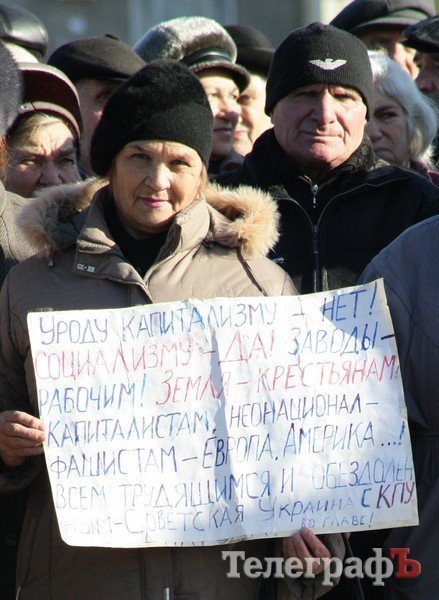 Уроду капитализму – нет!
Социализму – да! Заводы –
рабочим! Земля – крестьянам!
Капиталистам, неонационал –
фашистам – Европа, Америка...!
Всем трудящимся и обездолен
ным – Советская Украина с КПУ
во главе!
ТелеграфЪ